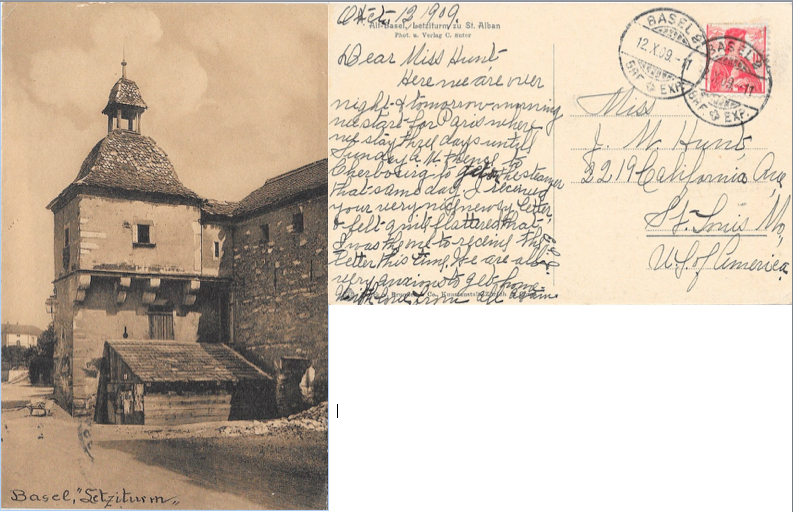 Basel, "Letziturm"
Octr. 12 1909.
Alt-Basel, Letziturm zu St. Alban
Phot. u. Verlag C. Suter
Dear Miss Hunt
Here we are over
night & tomorrow morning
we start for Paris where
we stay three days until
Sunday A.M. thence to
Cherbourg to get the steamer
that same day. I received
your very nice newsy letter
& felt quite flattered that
I was the one to receive the
letter this time. We are all
very anxious to get home
With love from all
Miss
J. M. Hunt
2219 California Ave
St. Louis Mo,
U.S. of America
BASEL 2
12.X.09.-11
BRF. EXP.
BASEL 2
09.-11
BRF. EXP.